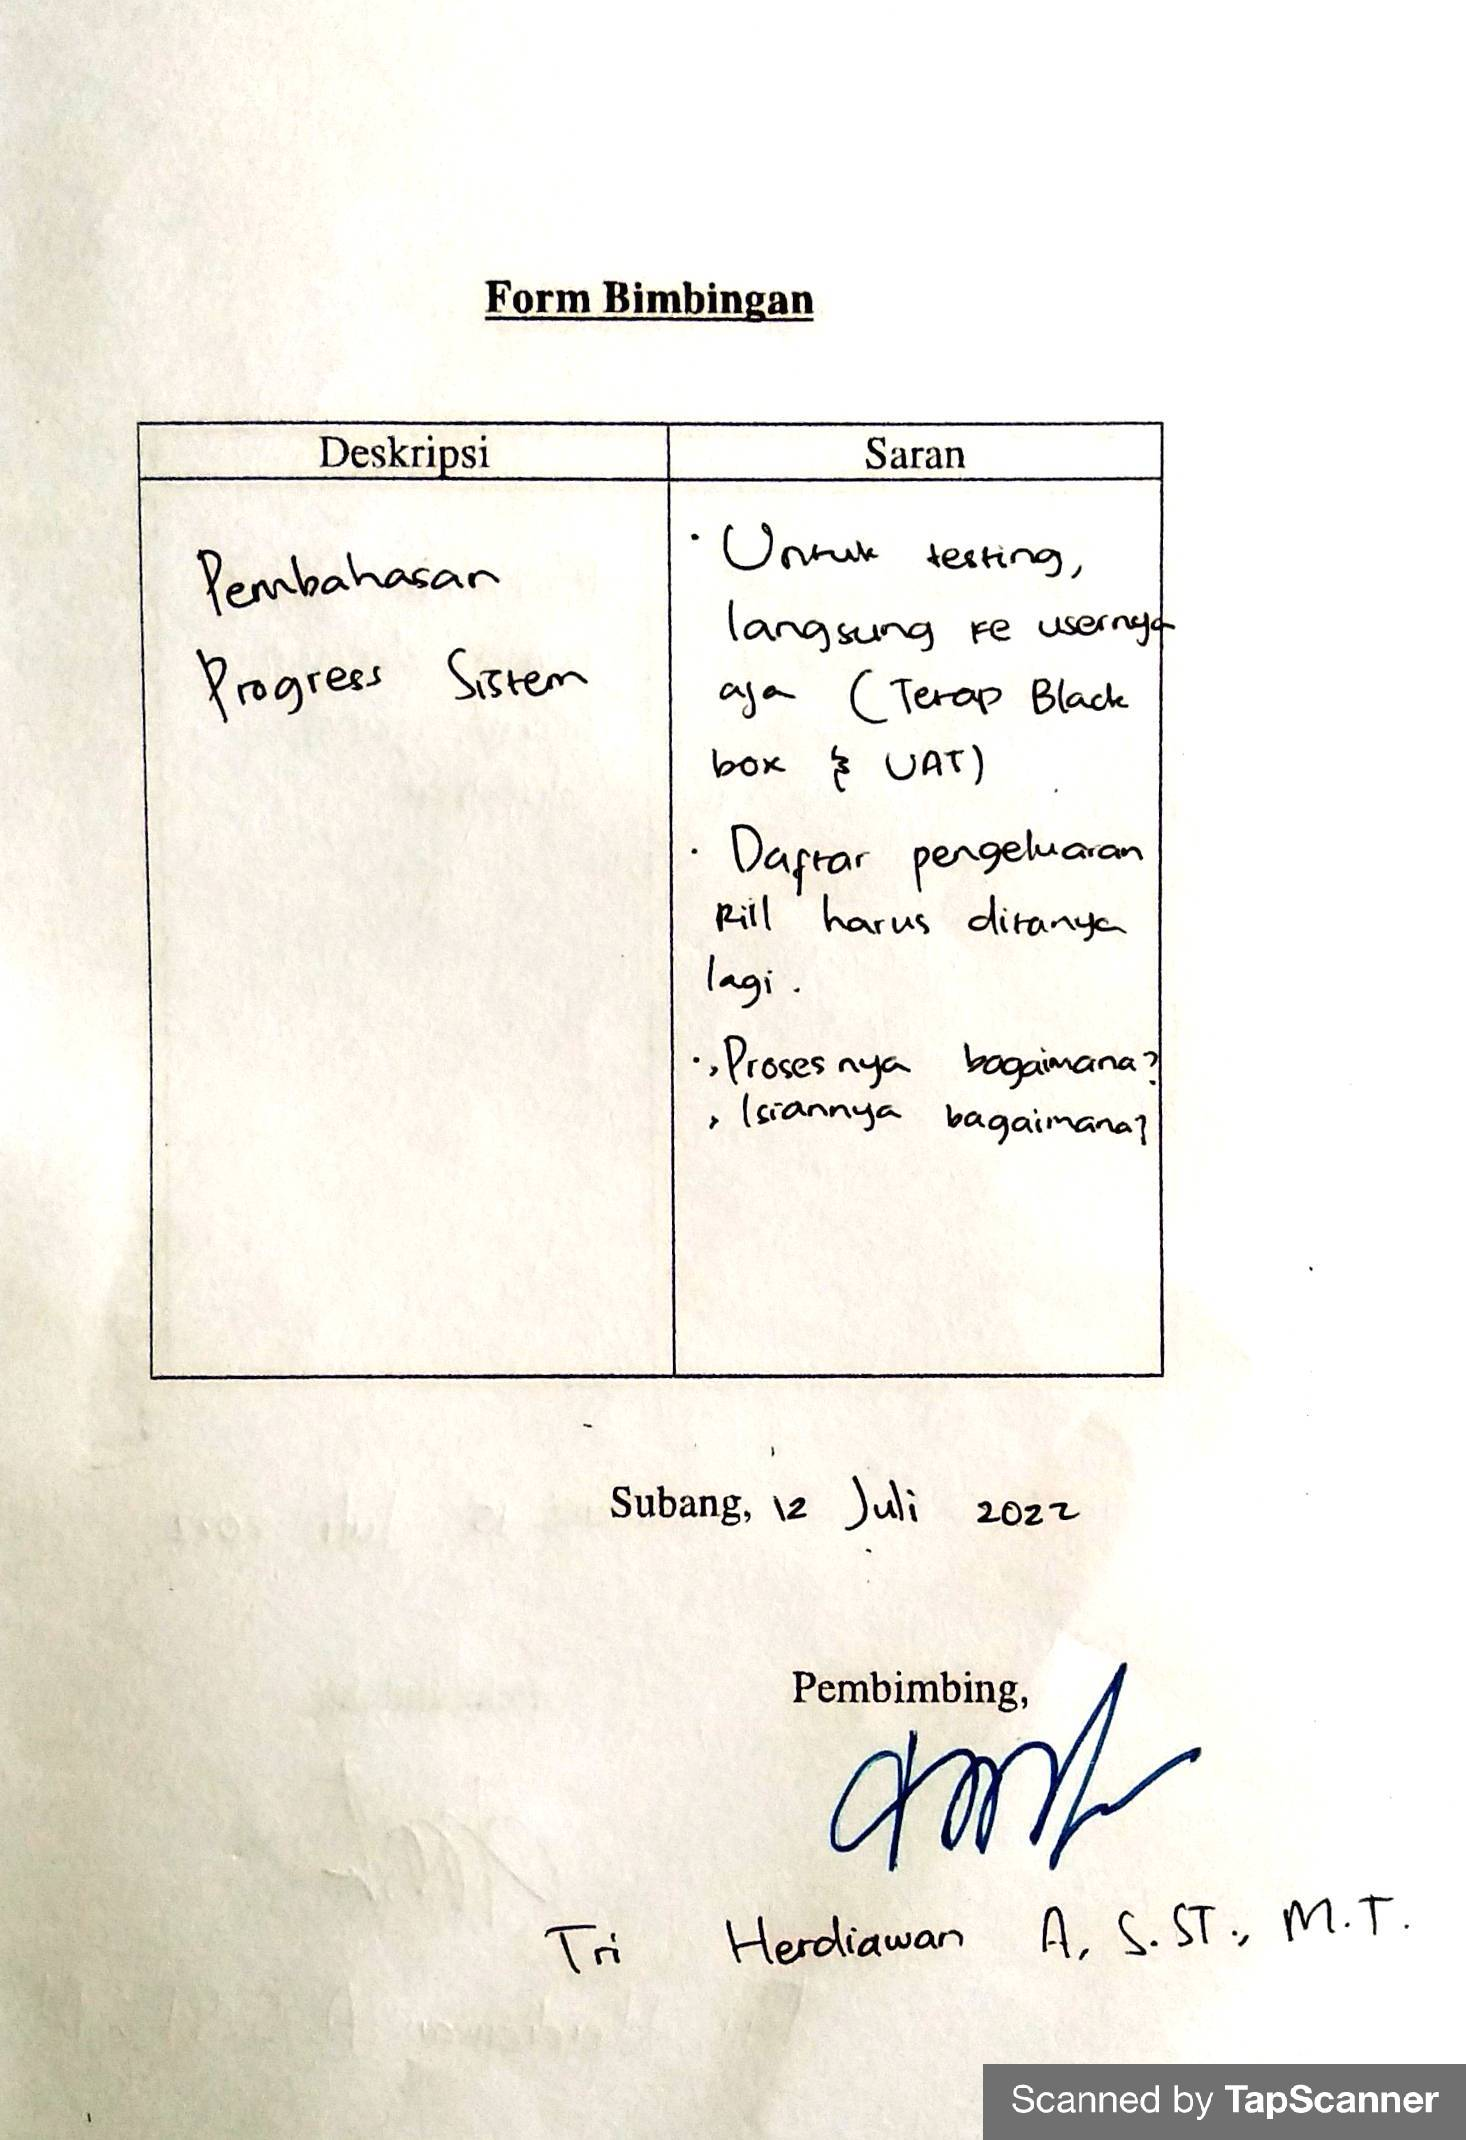 Form Bimbingan
Deskripsi
Saran
Pembahasan
Progress Sistem
· Untuk testing,
langsung ke usernya
aja (Terap Black
box & UAT)
· Daftar pengeluaran
Rill harus ditanya
lagi.
·, Prosesnya bagaimana?
, Isiannya bagaimana?
Subang, 12 Juli 2022
Pembimbing,
Tri Herdiawan A, S.ST., M.T.
Scanned by TapScanner